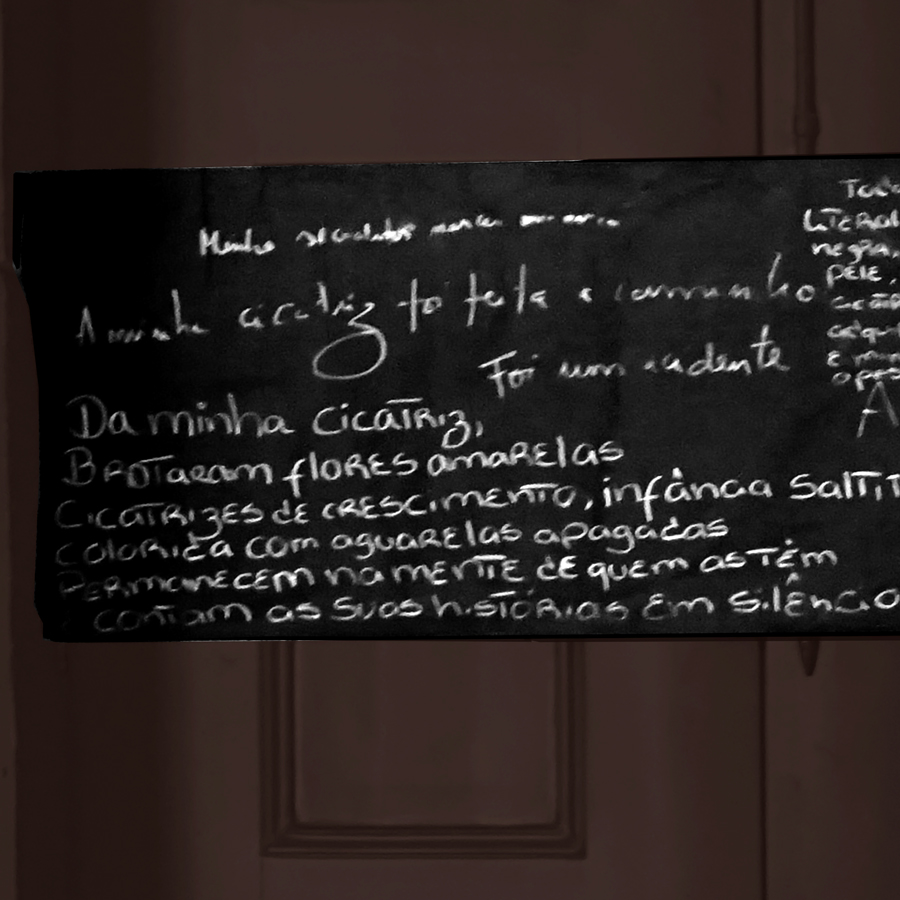 Minha
A minha cicatriz foi feita a caminho
Foi um acidente
Da minha cicatriz,
Brotaram flores amarelas
Cicatrizes de crescimento, infância saltit
colorida com aguarelas apagadas
Permanecem na mente de quem as têm
contam as suas histórias em silêncio
Tod
Literal
negra,
pele,
cicatr
adqui
E min
opres
A